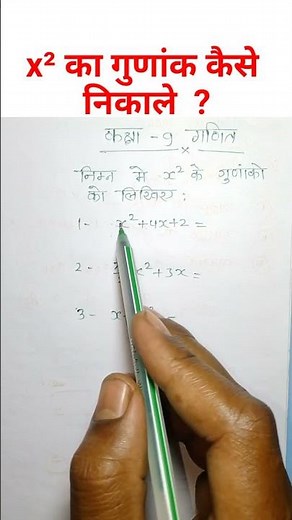 x² का गुणांक कैसे
निकाले ?
कक्षा - 9 गणित
x
निम्न मे x² के गुणांको
को लिखिए :
1- x²+4x+2 =
2- x²+3x =
3- x